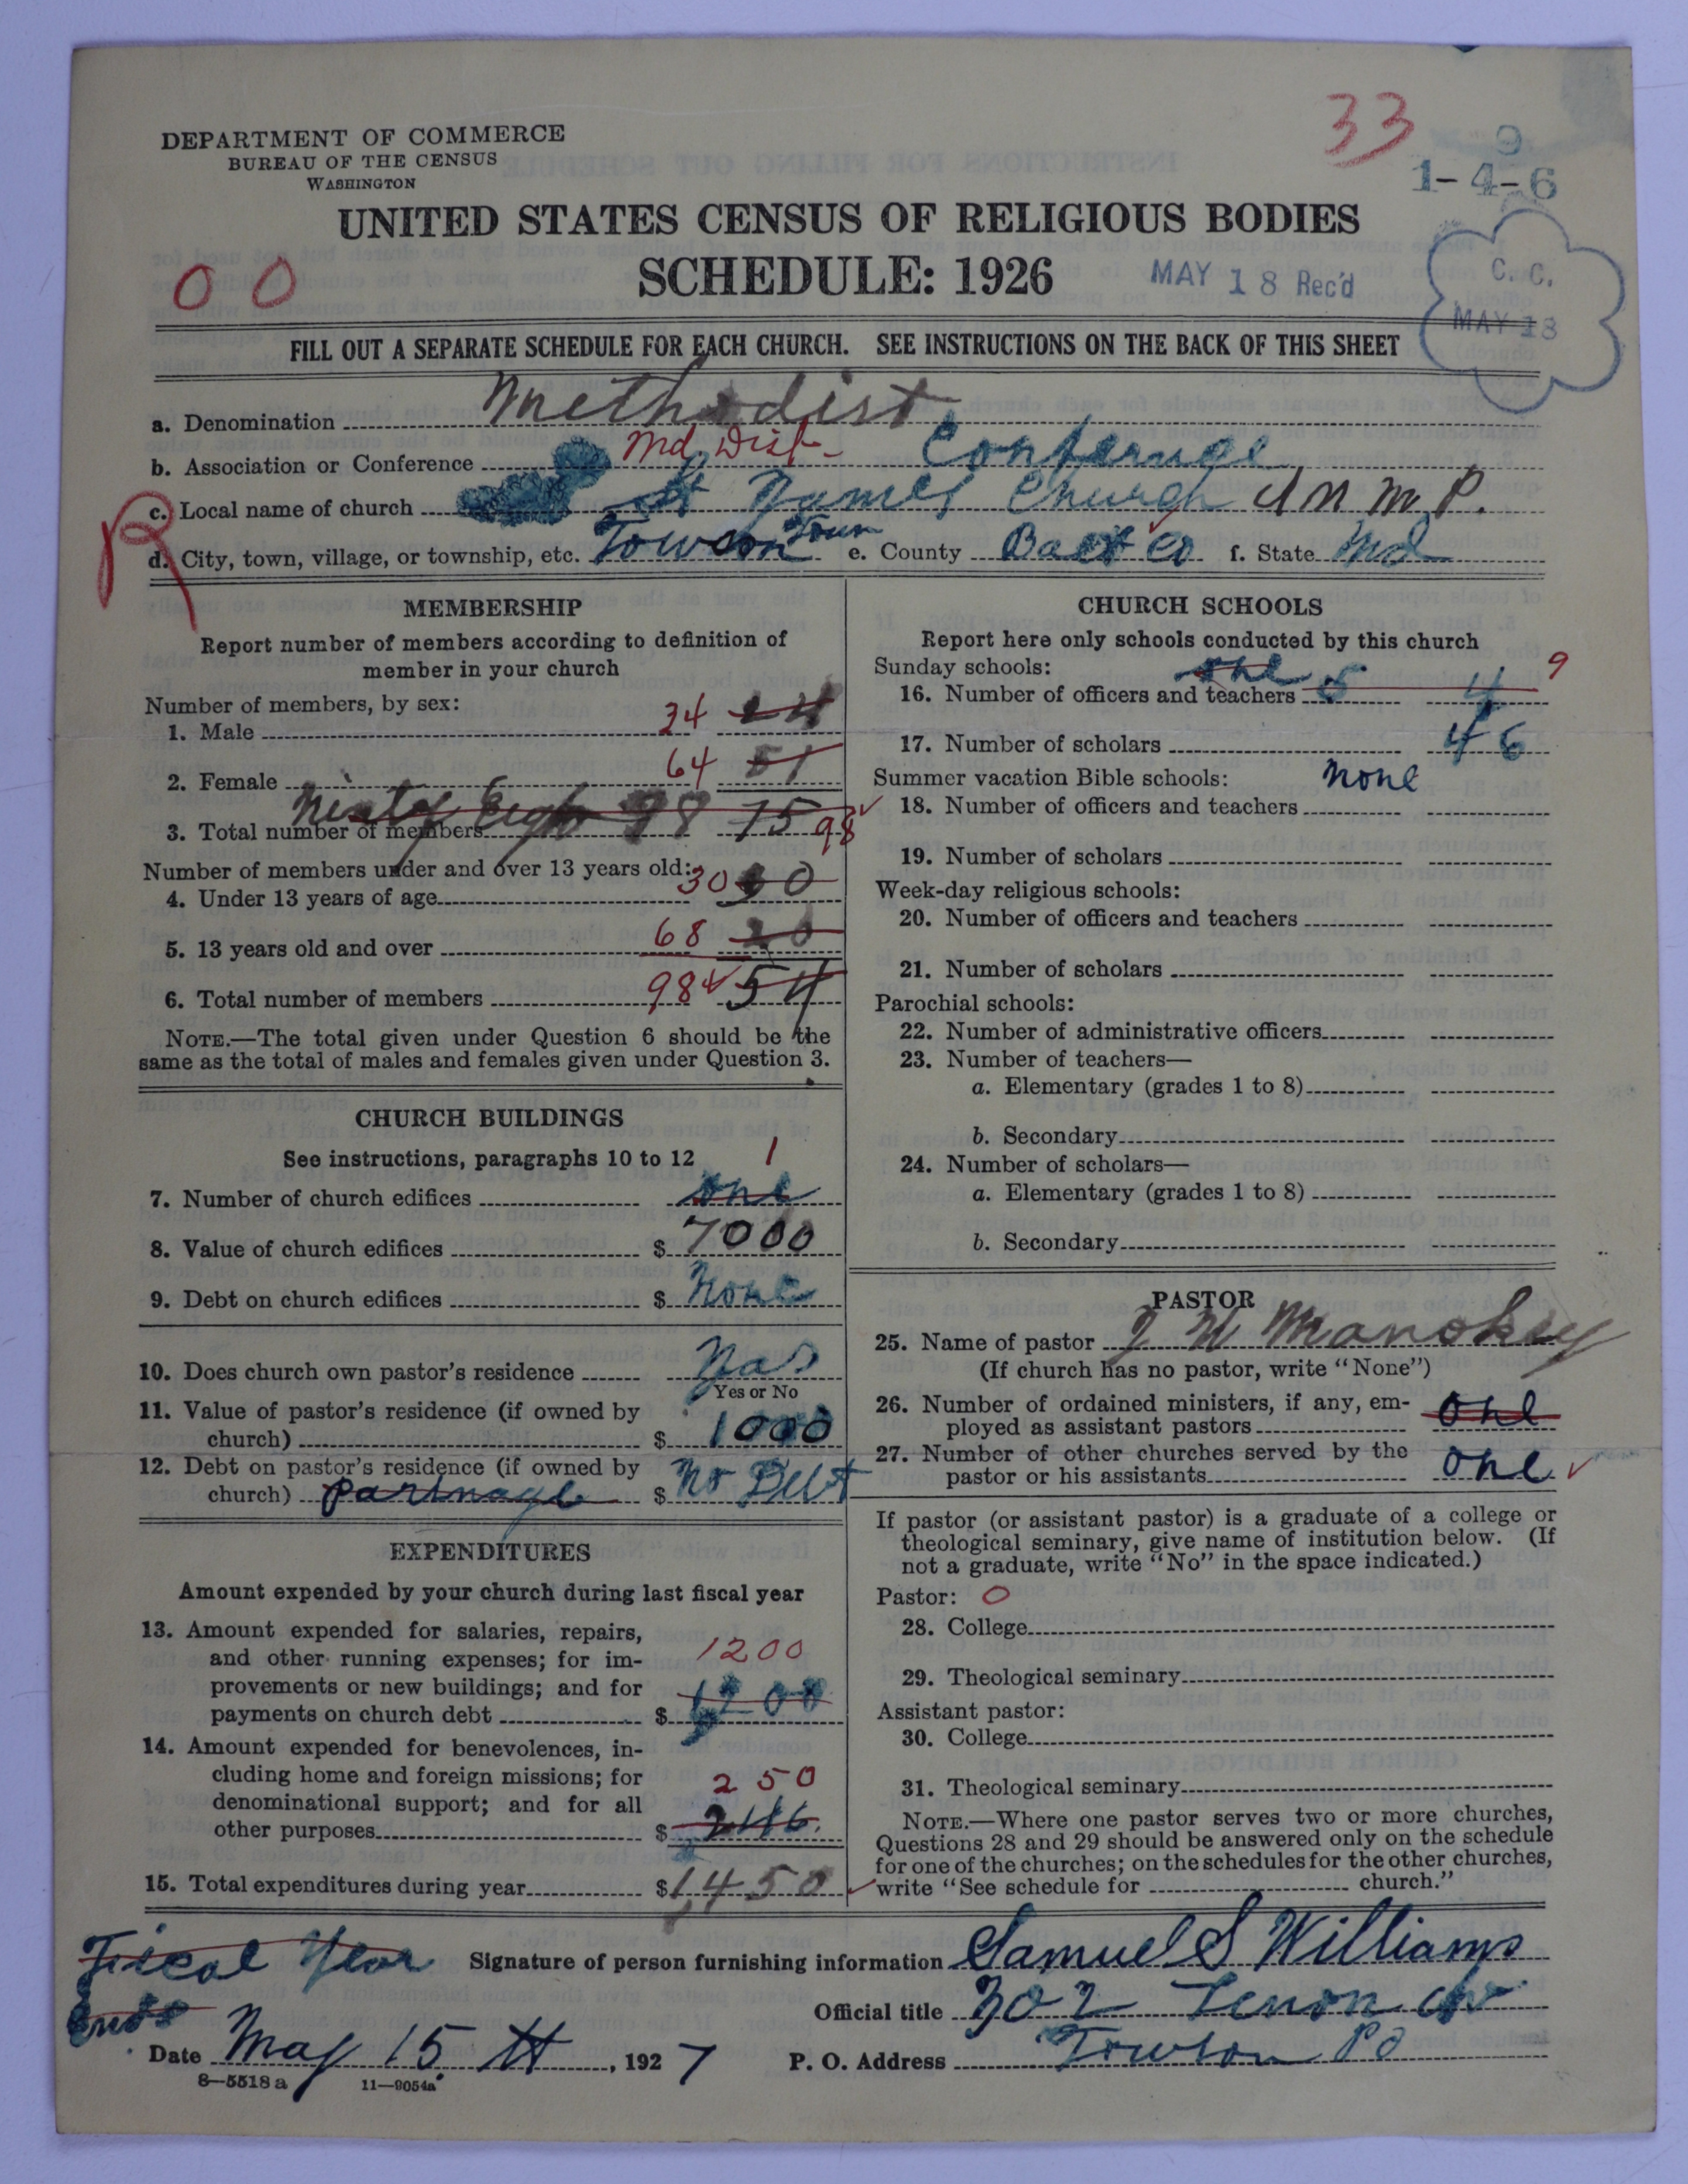 33
9
1-4-6
DEPARTMENT OF COMMERCE
BUREAU OF THE CENSUS
WASHINGTON
UNITED STATES CENSUS OF RELIGIOUS BODIES
00
SCHEDULE: 1926
MAY 18 Rec'd
C. C.
MAY 18
FILL OUT A SEPARATE SCHEDULE FOR EACH CHURCH. SEE INSTRUCTIONS ON THE BACK OF THIS SHEET
a. Denomination Methodist
b. Association or Conference Md Dist- Conference
R
c. Local name of church St James Church U M P.
d. City, town, village, or township, etc. Towson Town e. County Balt Co f. State Md
MEMBERSHIP
Report number of members according to definition of
member in your church
Number of members, by sex:
1. Male 34 24
2. Female 64 51
3. Total number of members Ninty Eight 98 75 98
Number of members under and over 13 years old:
4. Under 13 years of age 30 30
5. 13 years old and over 68
6. Total number of members 98 54
NOTE.—The total given under Question 6 should be the
same as the total of males and females given under Question 3.
CHURCH BUILDINGS
See instructions, paragraphs 10 to 12
1
7. Number of church edifices one
8. Value of church edifices $ 7000
9. Debt on church edifices $ None
10. Does church own pastor's residence Yas
Yes or No
11. Value of pastor's residence (if owned by
church) $ 1000
12. Debt on pastor's residence (if owned by
church) parsnage $ No Debt
EXPENDITURES
Amount expended by your church during last fiscal year
13. Amount expended for salaries, repairs,
and other running expenses; for im-
provements or new buildings; and for
payments on church debt $ 1200
1200
14. Amount expended for benevolences, in-
cluding home and foreign missions; for
denominational support; and for all
other purposes $ 246.
250
15. Total expenditures during year $ 1450
CHURCH SCHOOLS
Report here only schools conducted by this church
Sunday schools:
16. Number of officers and teachers one 5 4 9
17. Number of scholars 46
Summer vacation Bible schools: None
18. Number of officers and teachers
19. Number of scholars
Week-day religious schools:
20. Number of officers and teachers
21. Number of scholars
Parochial schools:
22. Number of administrative officers
23. Number of teachers—
a. Elementary (grades 1 to 8)
b. Secondary
24. Number of scholars—
a. Elementary (grades 1 to 8)
b. Secondary
PASTOR
25. Name of pastor J W Manokey
(If church has no pastor, write "None")
26. Number of ordained ministers, if any, em-
ployed as assistant pastors one
27. Number of other churches served by the
pastor or his assistants one
If pastor (or assistant pastor) is a graduate of a college or
theological seminary, give name of institution below. (If
not a graduate, write "No" in the space indicated.)
Pastor: 0
28. College
29. Theological seminary
Assistant pastor:
30. College
31. Theological seminary
NOTE.—Where one pastor serves two or more churches,
Questions 28 and 29 should be answered only on the schedule
for one of the churches; on the schedules for the other churches,
write "See schedule for church."
Fiscal Year
Ends
Signature of person furnishing information Samuel S Williams
Official title 302 Lenon Av
Date May 15 th, 1927
P. O. Address Towson Po
8—5518a 11—9054a